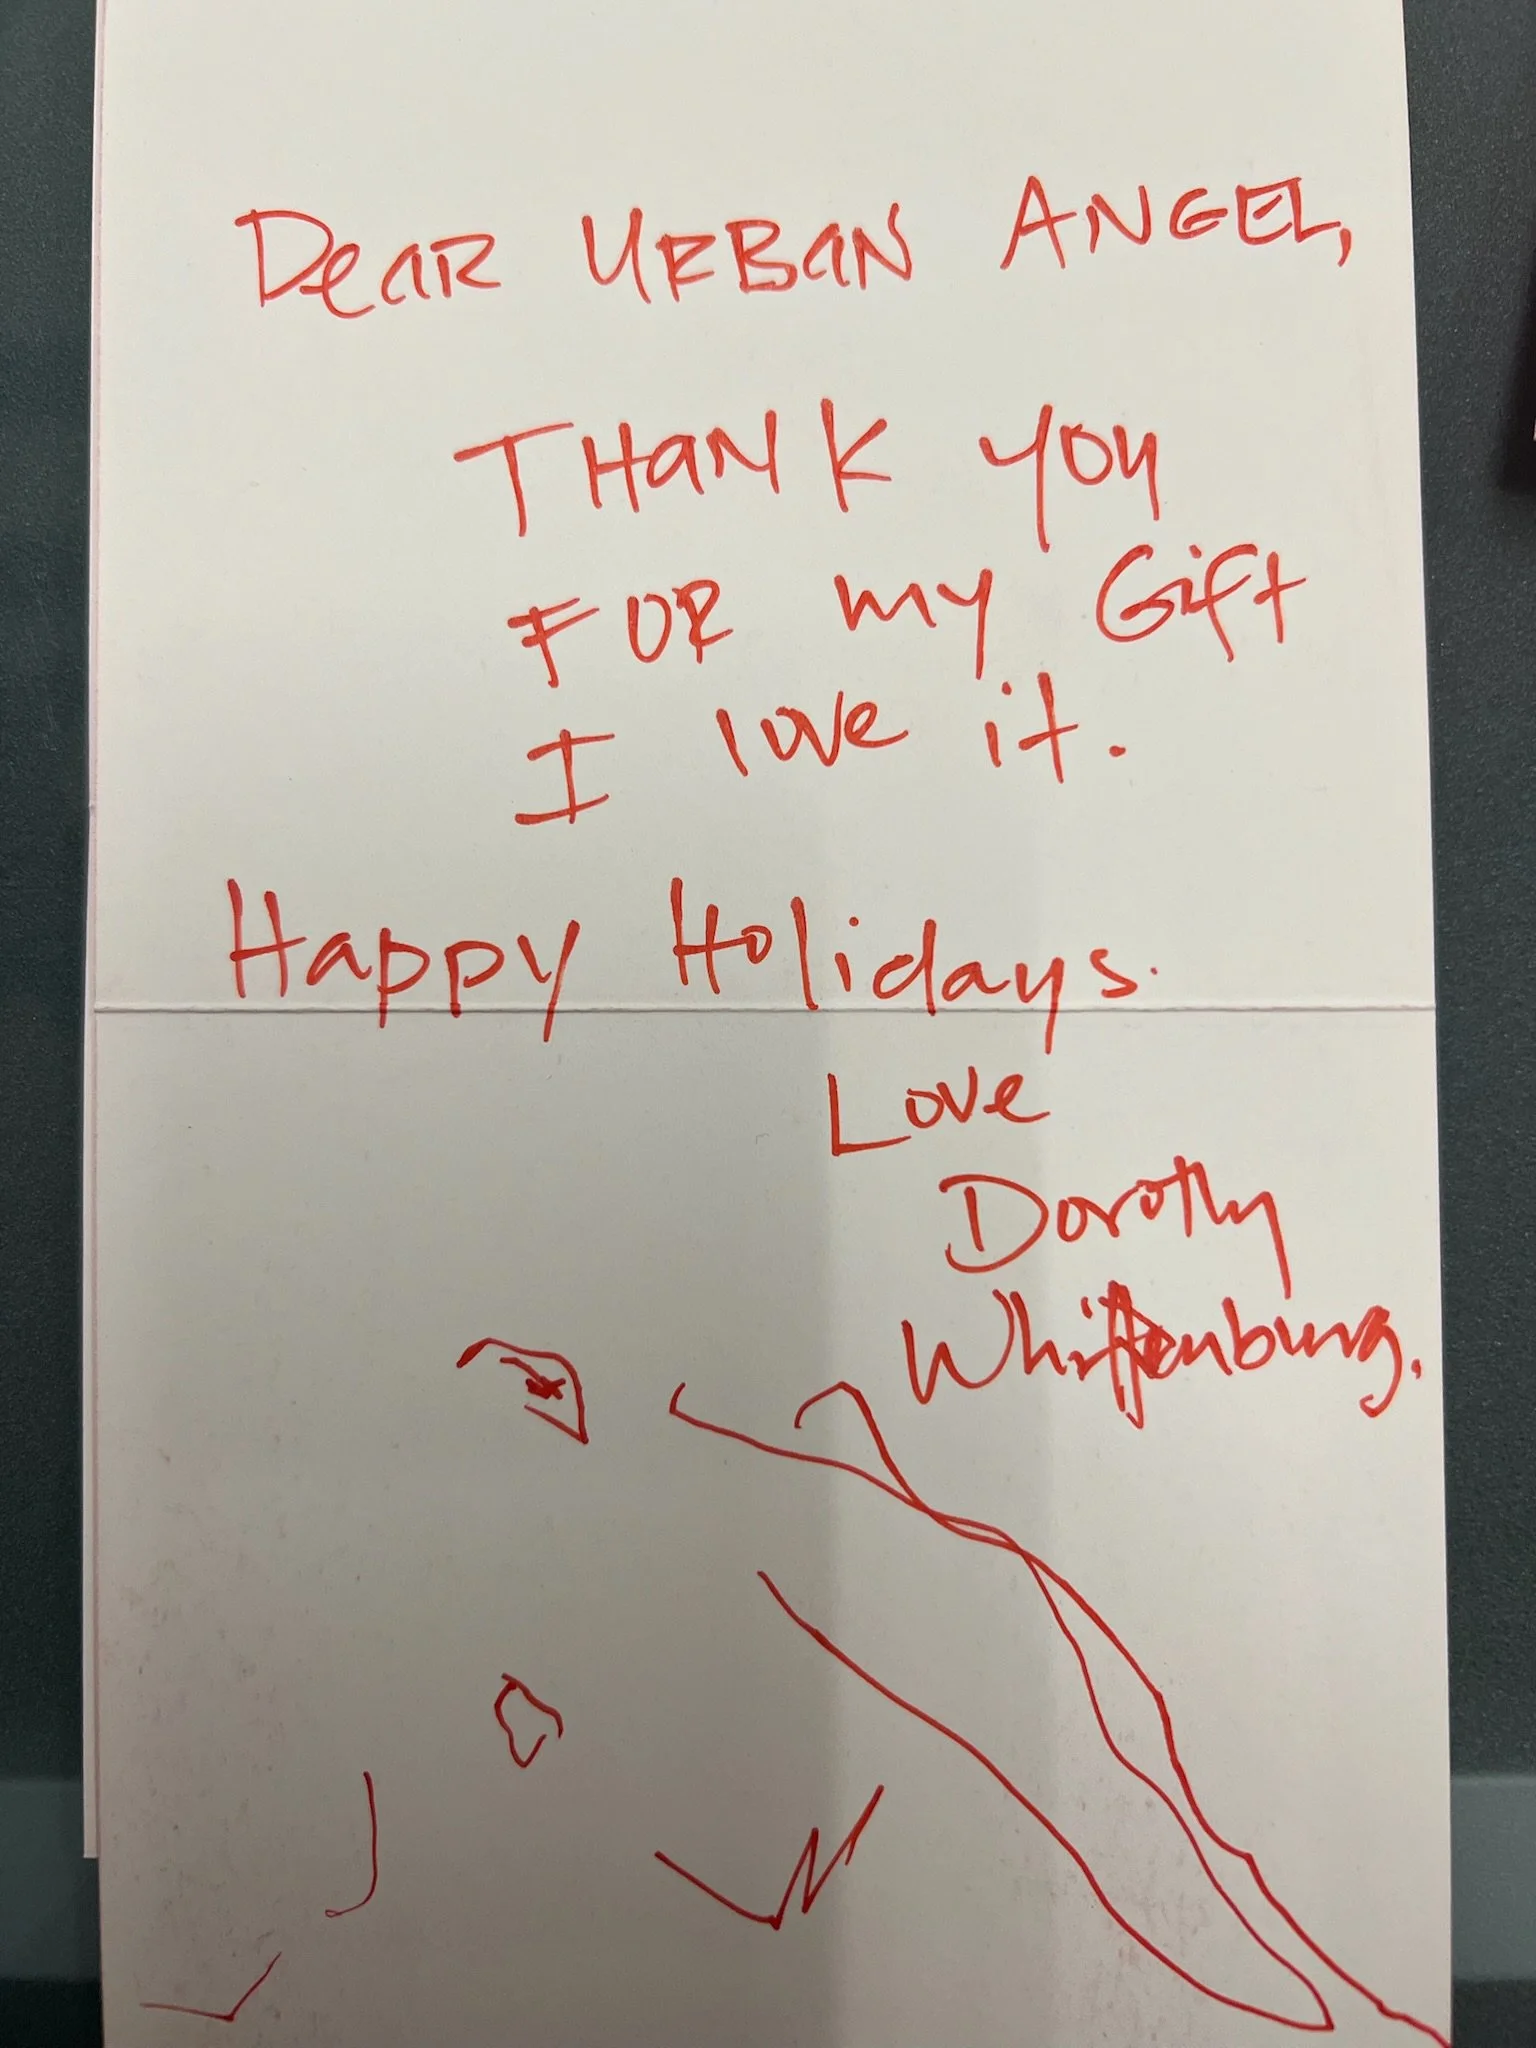 Dear URBAN ANGEL,
THANK you
FOR my Gift
I love it.
Happy Holidays.
Love
Dorothy
Whittenburg.